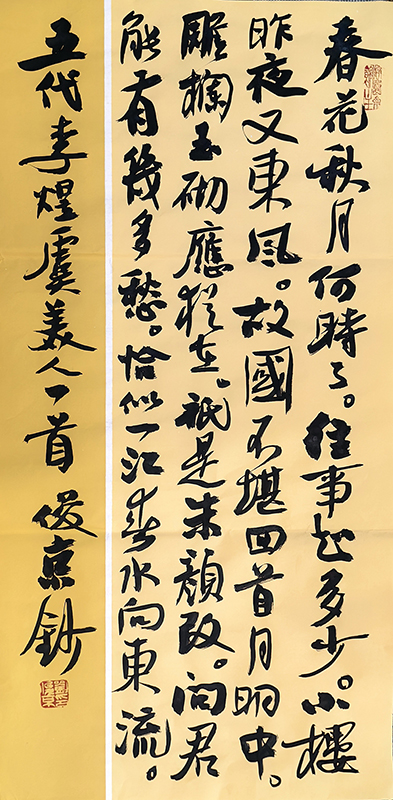 春花秋月何時了。往事知多少。小樓
昨夜又東風。故國不堪回首月明中。
雕欄玉砌應猶在。祇是朱顏改。問君
能有幾多愁。恰似一江春水向東流。
五代李煜虞美人一首 俊京鈔